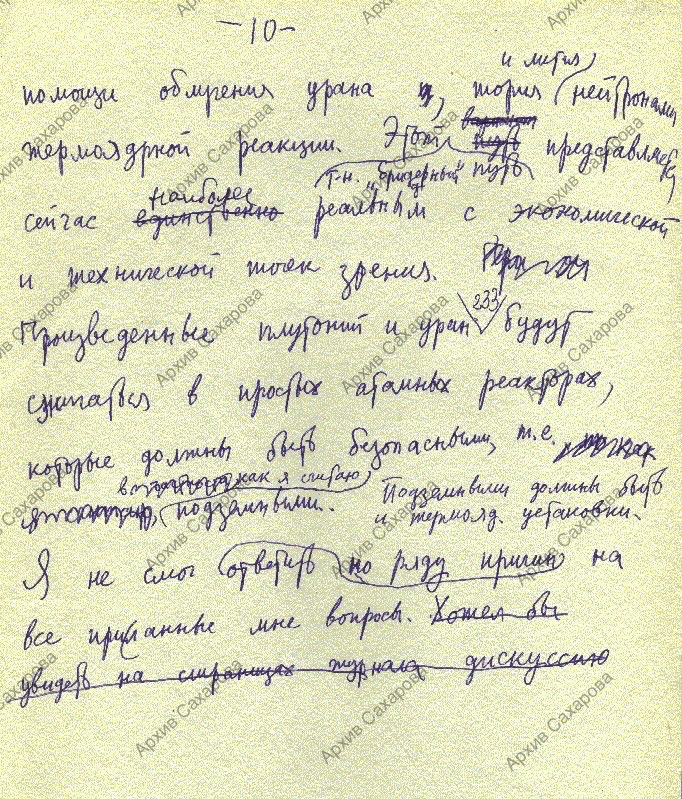 -10-
и лития
помощи облучения урана и, тория нейтронами
вариант
термоядерной реакции. Этот путь представляется
т.н. „бридерный" путь
наиболее
сейчас единственно реальным с экономической
и технической точек зрения.
233
Произведенные плутоний и уран будут
сжигаться в простых атомных реакторах,
которые должны быть безопасными, т.е.
как я считаю
подземными. Подземными должны быть
и термояд. установки.
Я не смог ответить по ряду причин на
все присланные мне вопросы. Хотел бы
увидеть на страницах журнала дискуссию
Архив Сахарова